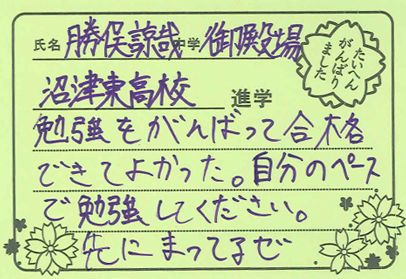 氏名 勝俣諒哉 中学 御殿場
たいへん
がんばり
ました
沼津東高校 進学
勉強をがんばって合格
できてよかった。自分のペース
で勉強してください。
先にまってるぜ